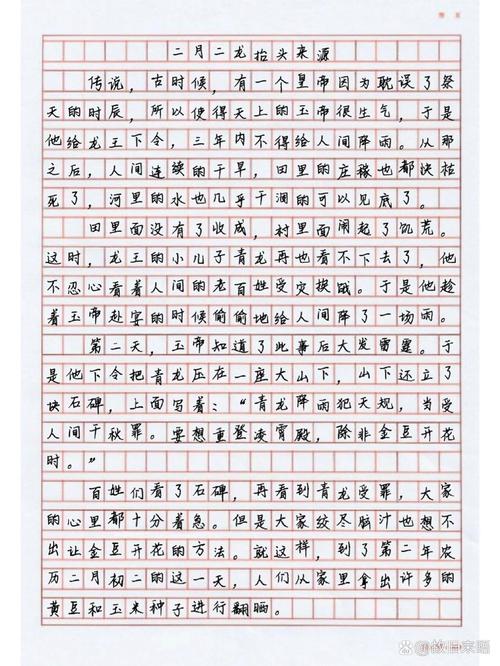 二月二龙抬头来源
传说，古时候，有一个皇帝因为耽误了祭
天的时辰，所以使得天上的玉帝很生气，于是
他给龙王下令，三年内不得给人间降雨。从那
之后，人间连续的干旱，田里的庄稼也都快枯
死了，河里的水也几乎干涸的可以见底了。
田里面没有了收成，村里面闹起了饥荒。
这时，龙王的小儿子青龙再也看不下去了，他
不忍心看着人间的老百姓受灾挨饿。于是他趁
着玉帝赴宴的时候偷偷地给人间降了一场雨。
第二天，玉帝知道了此事后大发雷霆。于
是他下令把青龙压在一座大山下，山下还立了
块石碑，上面写着：“青龙降雨犯天规，当受
人间千秋罪。要想重登凌霄殿，除非金豆开花
时。”
百姓们看了石碑，再看到青龙受罪，大家
的心里都十分着急。但是大家绞尽脑汁也想不
出让金豆开花的方法。就这样，到了第二年农
历二月初二的这一天，人们从家里拿出许多的
黄豆和玉米种子进行翻晒。